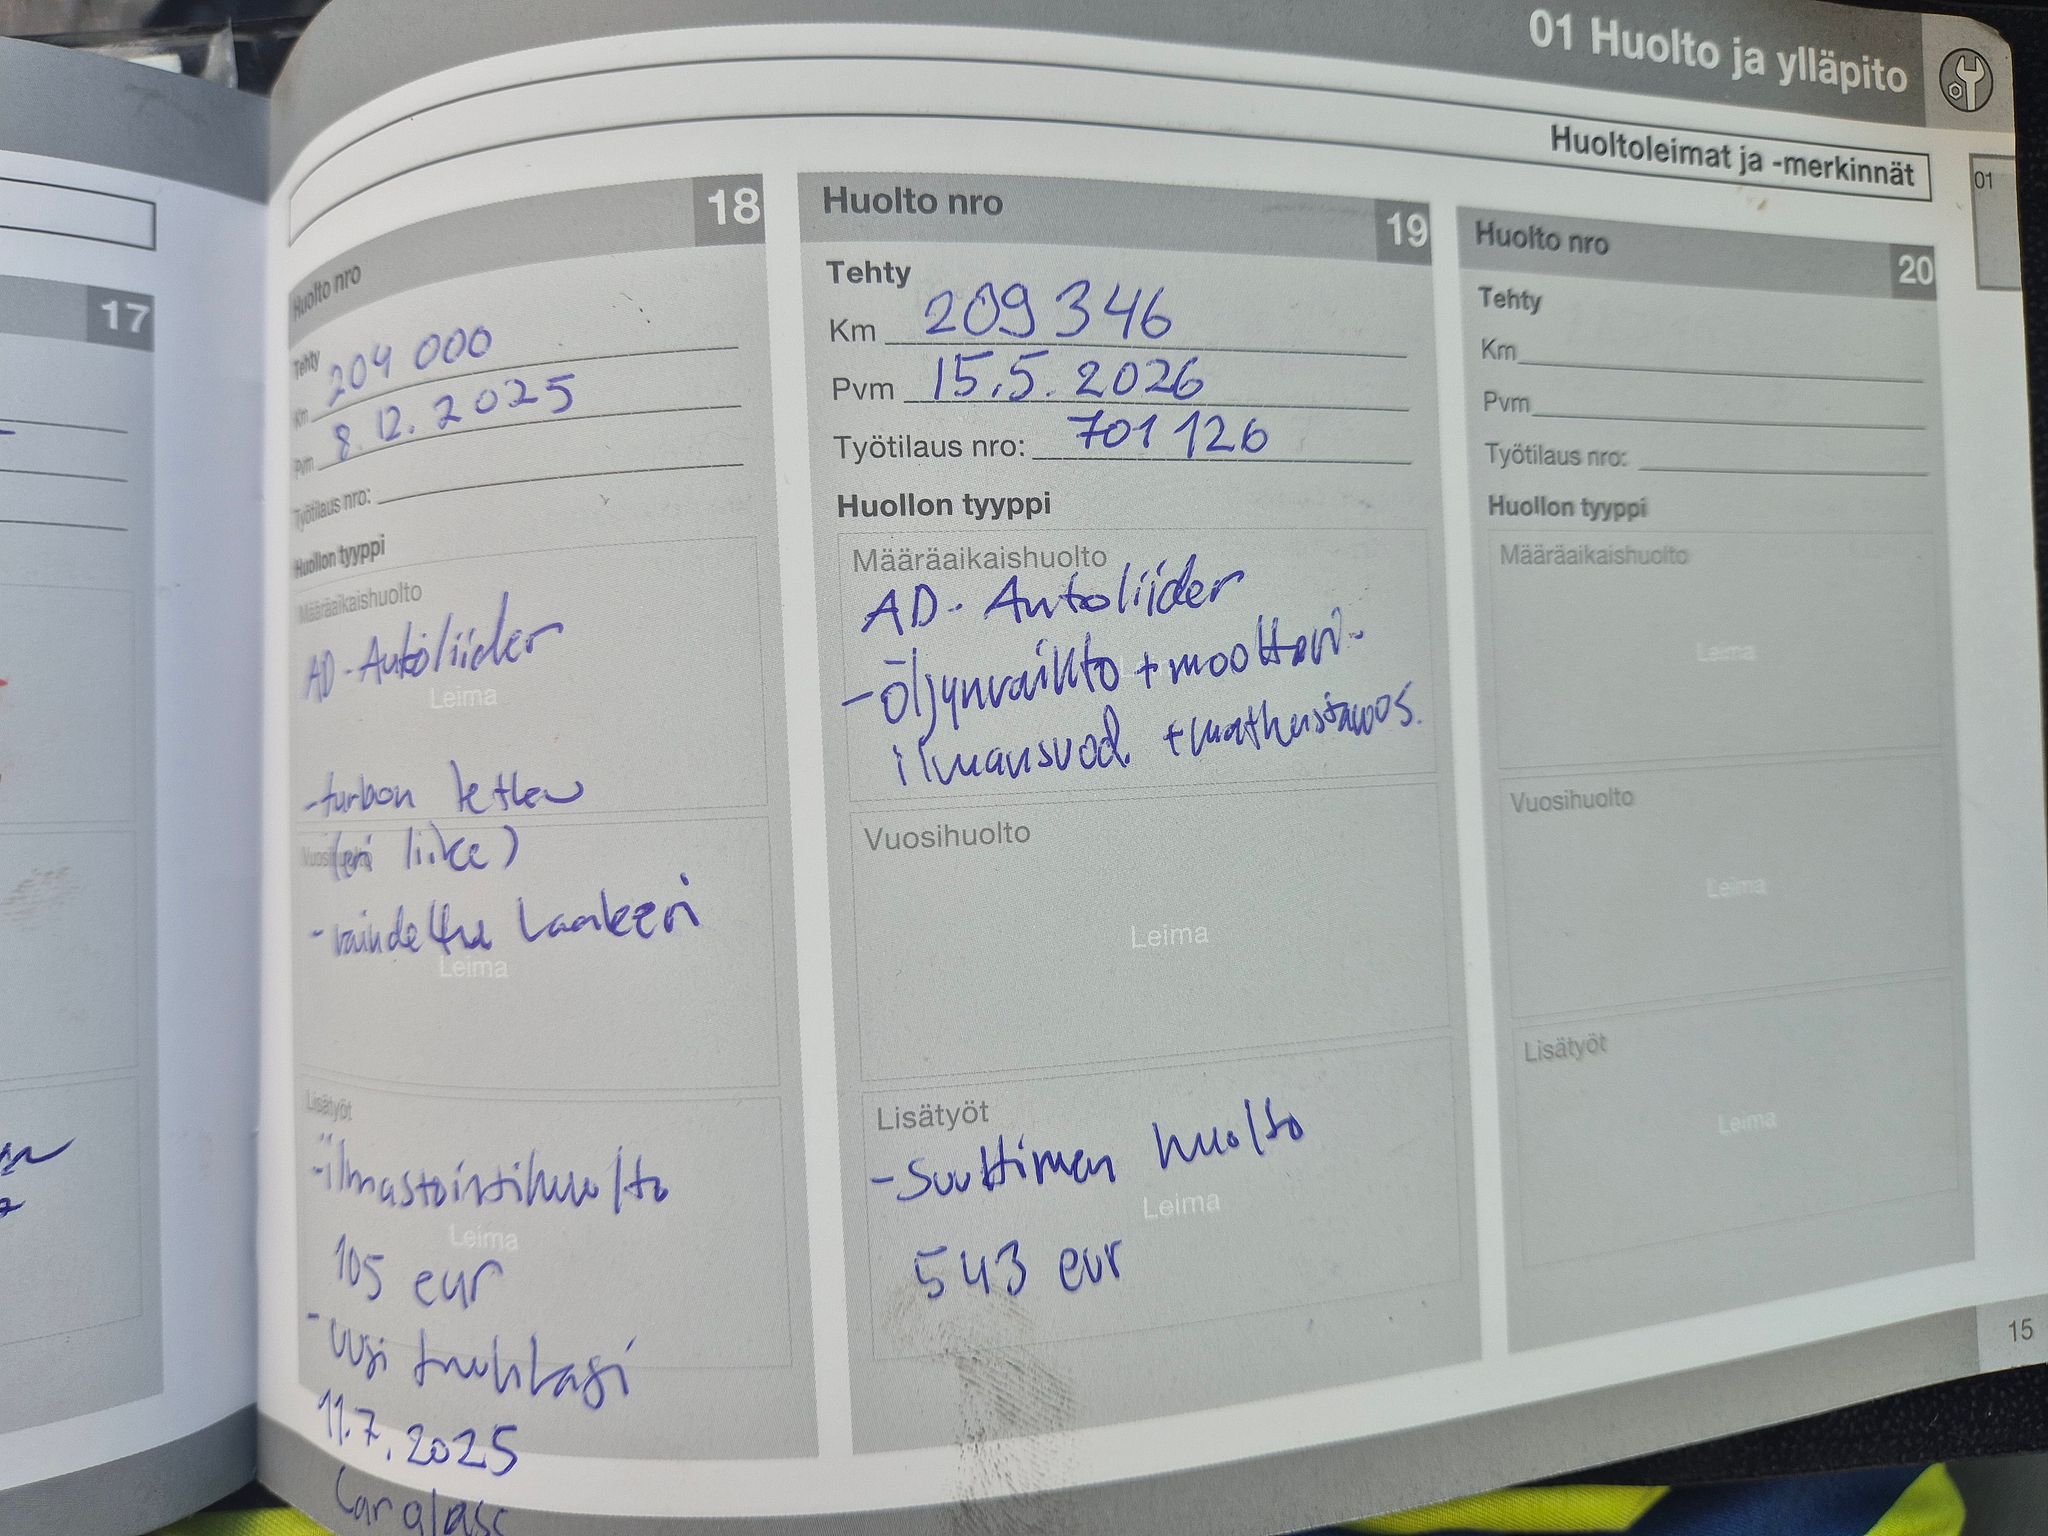 01 Huolto ja ylläpito
Huoltoleimat ja -merkinnät
01
17
Huolto nro 18
Tehty
Km 204 000
Pvm 8.12.2025
Työtilaus nro:
Huollon tyyppi
Määräaikaishuolto
AD-Autoliider
Leima
-turbon letku
(eri liike)
Vuosihuolto
- vaihdettu laakeri
Leima
Lisätyöt
-ilmastointihuolto
Leima
105 eur
-uusi tuulilasi
11.7.2025
Carglass
Huolto nro 19
Tehty
Km 209 346
Pvm 15.5.2026
Työtilaus nro: 701126
Huollon tyyppi
Määräaikaishuolto
AD-Autoliider
-öljynvaihto + moottori-
ilmansuod. +matkustamos.
Vuosihuolto
Leima
Lisätyöt
-Suuttimen huolto
Leima
543 eur
Huolto nro 20
Tehty
Km
Pvm
Työtilaus nro:
Huollon tyyppi
Määräaikaishuolto
Leima
Vuosihuolto
Leima
Lisätyöt
Leima
15